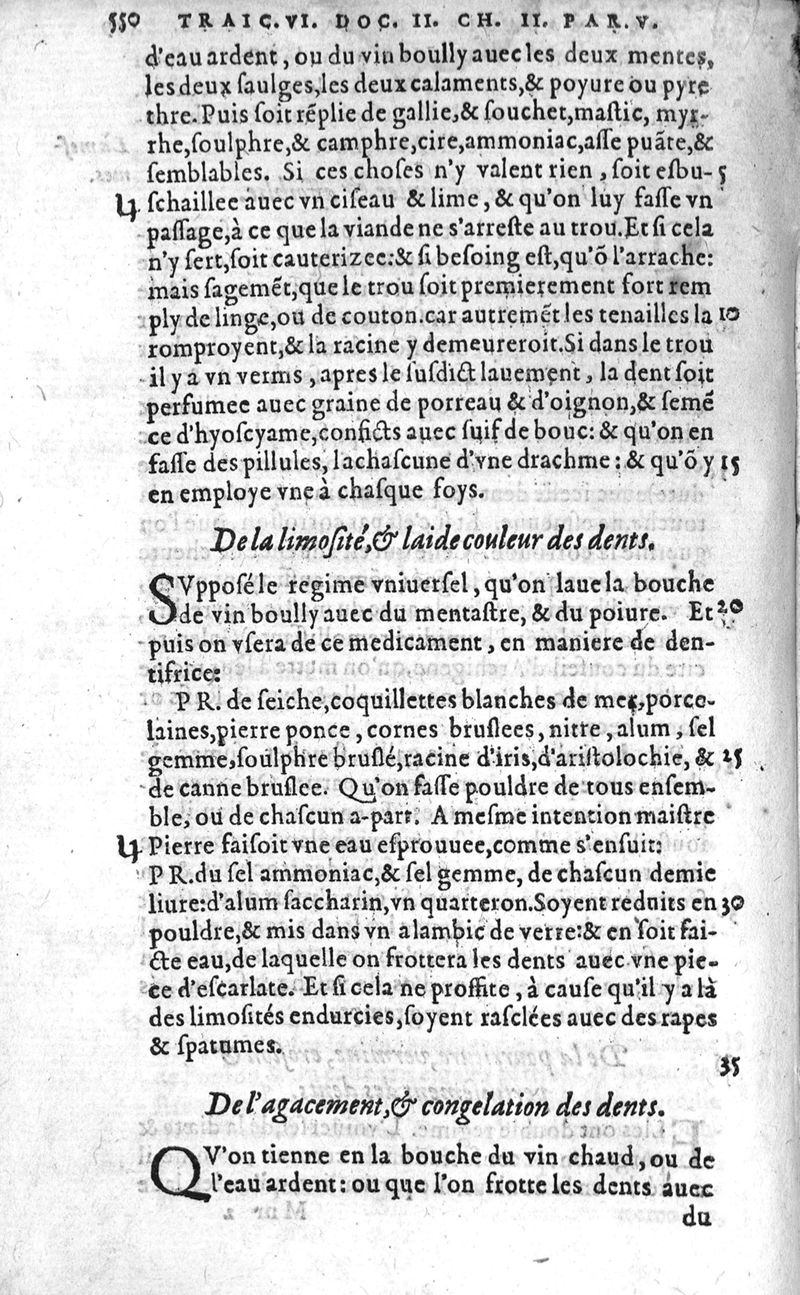 550 TRAIC. VI. DOC. II. CH. II. PAR. V.
d'eau ardent, ou du vin boully auec les deux mentes,
les deux ſaulges, les deux calaments, & poyure ou pyre
thre. Puis ſoit rẽplie de gallie, & ſouchet, maſtic, myr-
rhe, ſoulphre, & camphre, cire, ammoniac, aſſe puãte, &
ſemblables. Si ces choſes n'y valent rien, ſoit eſbu- 5
ſchaillee auec vn ciſeau & lime, & qu'on luy faſſe vn
paſſage, à ce que la viande ne s'arreſte au trou. Et ſi cela
n'y ſert, ſoit cauterizee: & ſi beſoing eſt, qu'õ l'arrache:
mais ſagemẽt, que le trou ſoit premierement fort rem
ply de linge, ou de couton. car autremẽt les tenailles la 10
romproyent, & la racine y demeureroit. Si dans le trou
il y a vn verms, apres le ſuſdict lauement, la dent ſoit
perfumee auec graine de porreau & d'oignon, & ſemẽ
ce d'hyoſcyame, conficts auec ſuif de bouc: & qu'on en
faſſe des pillules, lachaſcune d'vne drachme: & qu'õ y 15
en employe vne à chaſque foys.
De la limoſité, & laide couleur des dents.
SVppoſé le regime vniuerſel, qu'on laue la bouche
de vin boully auec du mentaſtre, & du poiure. Et 20
puis on vſera de ce medicament, en maniere de den-
tifrice:
PR. de ſeiche, coquillettes blanches de mer, porce-
laines, pierre ponce, cornes bruſlees, nitre, alum, ſel
gemme, ſoulphre bruſlé, racine d'iris, d'ariſtolochie, & 25
de canne bruſlee. Qu'on faſſe pouldre de tous enſem-
ble, ou de chaſcun a-part. A meſme intention maiſtre
Pierre faiſoit vne eau eſprouuee, comme s'enſuit:
PR. du ſel ammoniac, & ſel gemme, de chaſcun demie
liure: d'alum ſaccharin, vn quarteron. Soyent reduits en 30
pouldre, & mis dans vn alambic de verre: & en ſoit fai-
cte eau, de laquelle on frottera les dents auec vne pie-
ce d'eſcarlate. Et ſi cela ne proffite, à cauſe qu'il y a là
des limoſités endurcies, ſoyent raſclées auec des rapes
& ſpatumes.
35
De l'agacement, & congelation des dents.
QV'on tienne en la bouche du vin chaud, ou de
l'eau ardent: ou que l'on frotte les dents auec
du